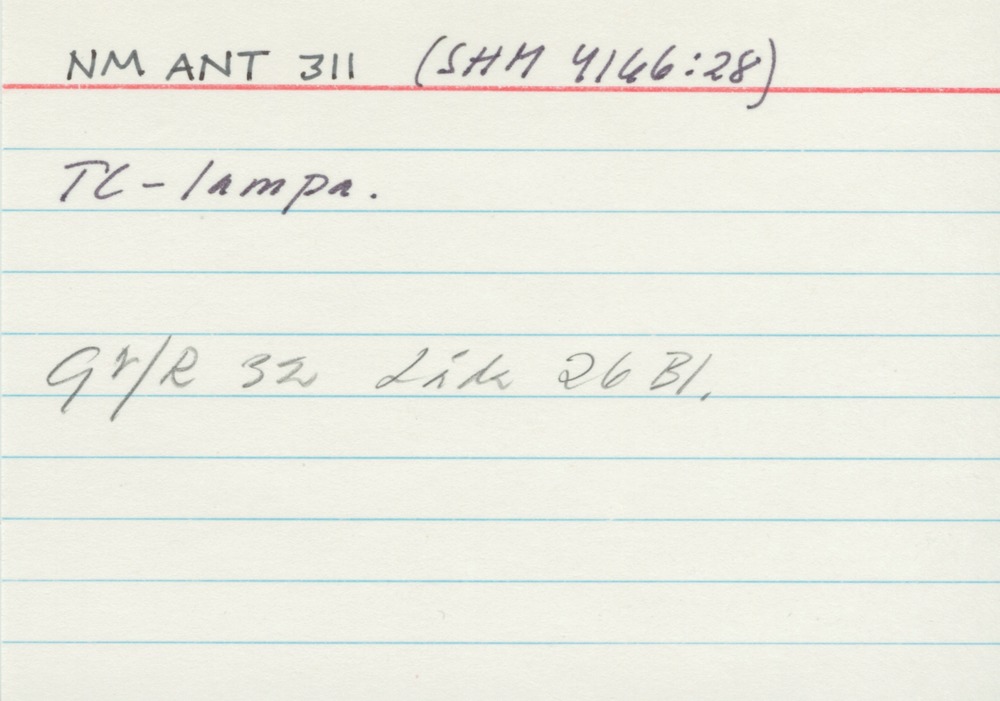 NM ANT 311 (SHM 4166:28)
TC-lampa.
Gr/R 32 Låda 26 Bl.